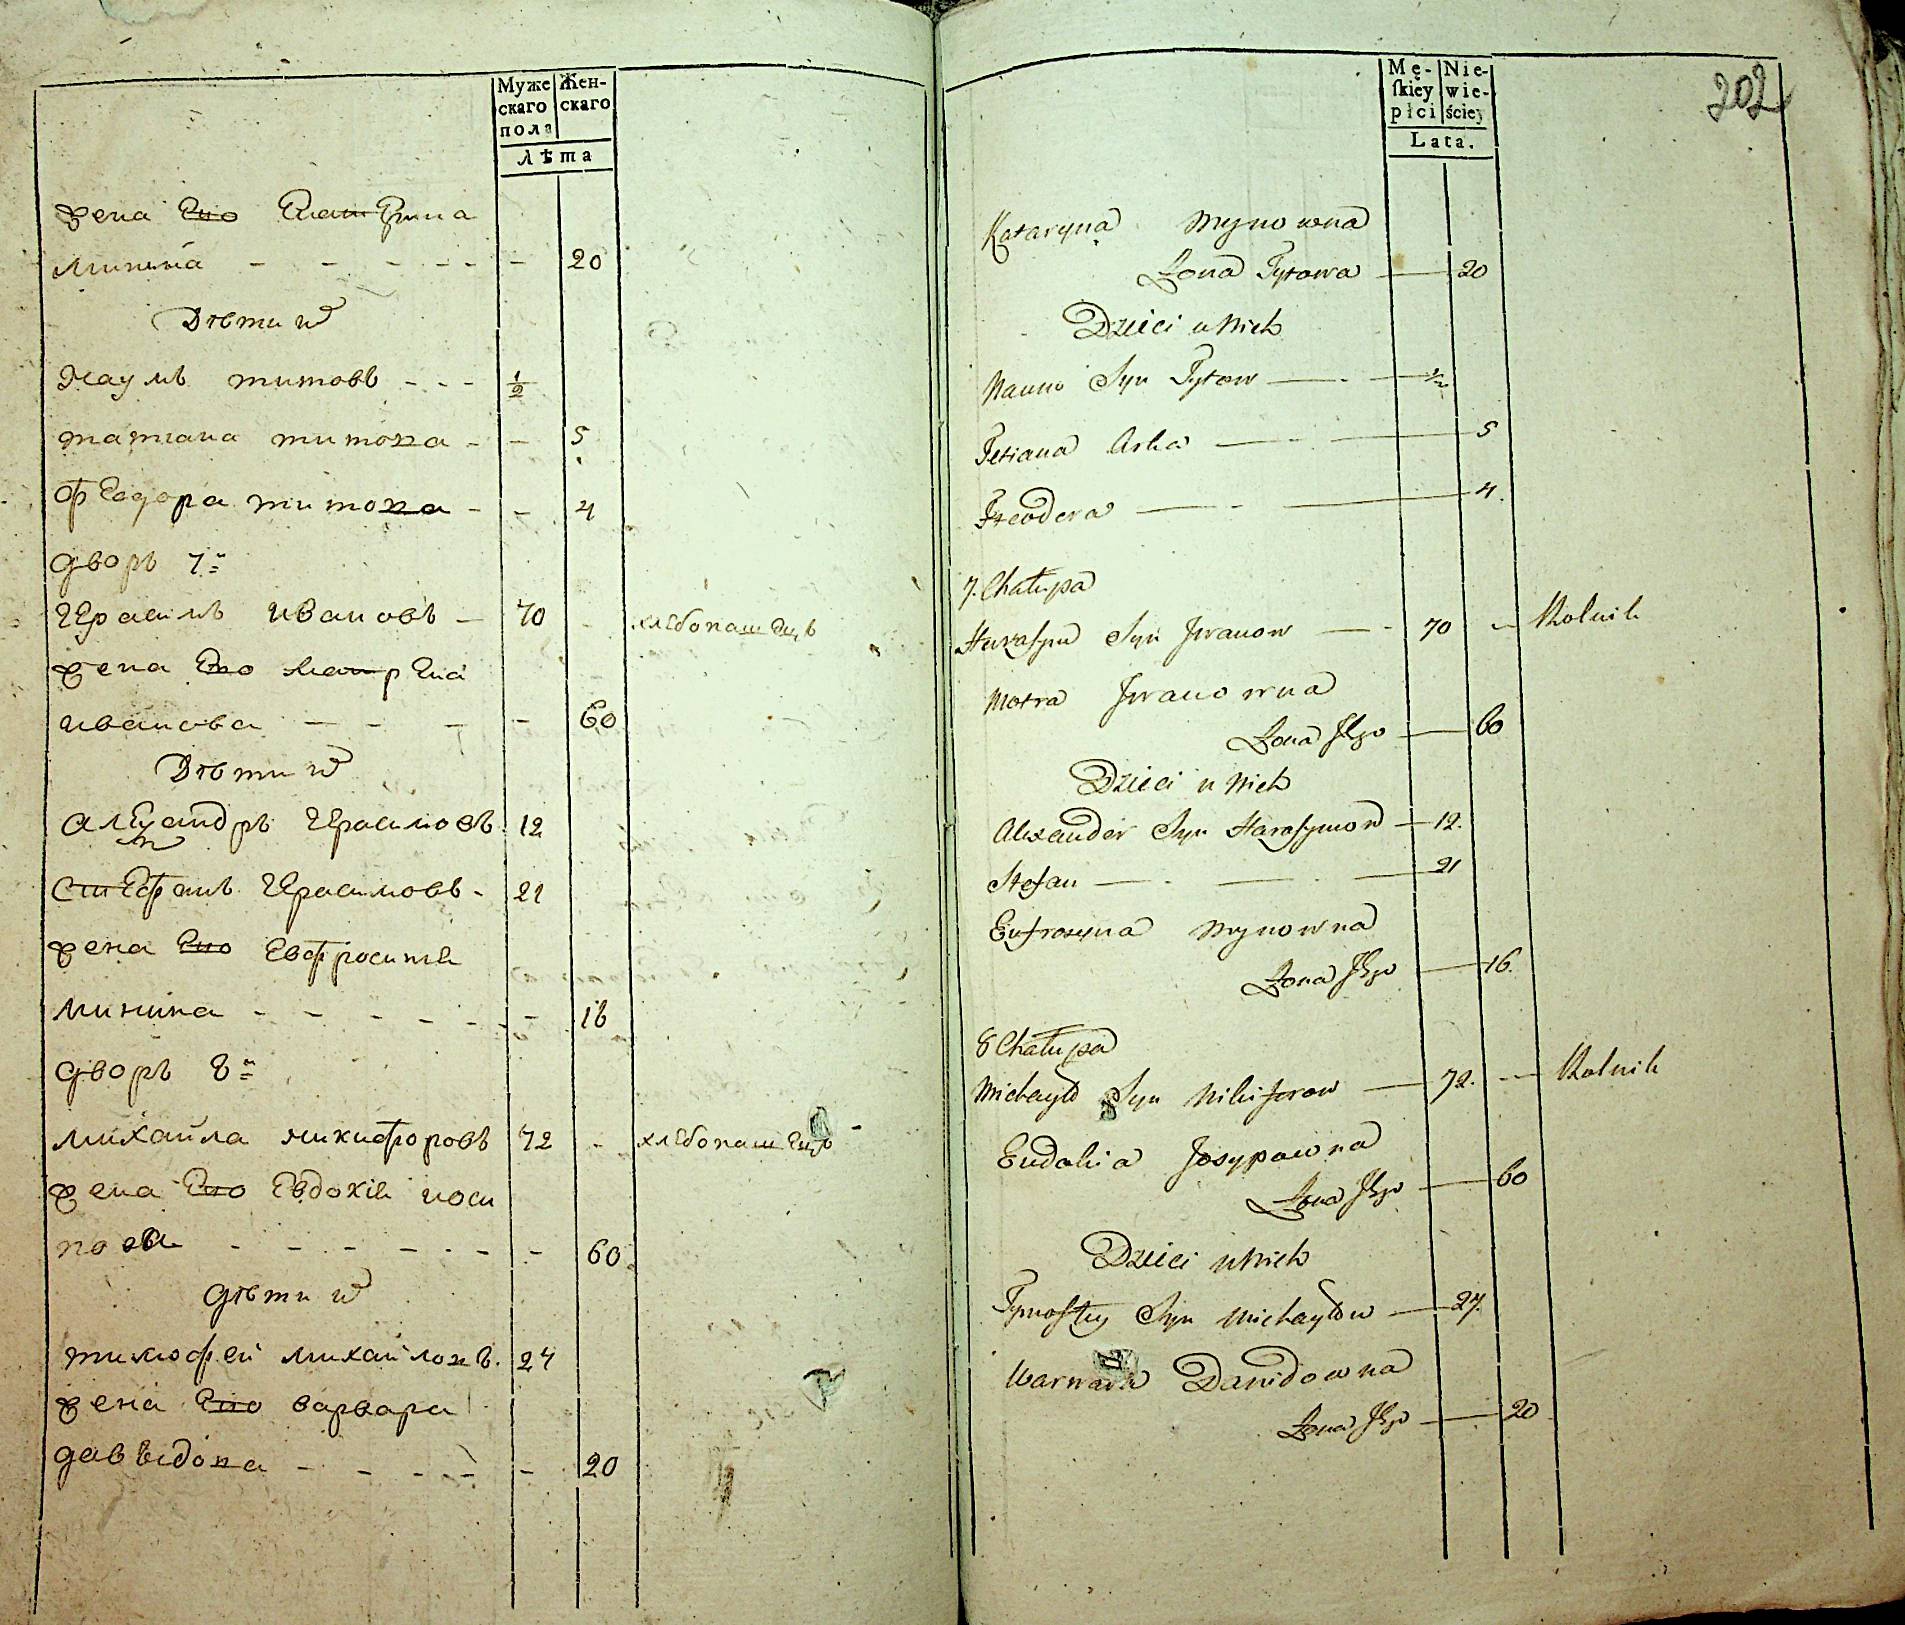 Муже Жен-
скаго скаго
пола
лѣта
жена Его Екатерина
минина - - - - - - 20
Дѣти их
Наумъ титовъ - - - 1/2
татиана титова - - 5
Феодора титова - - 4
дворъ 7й
Герасимъ Ивановъ - 70 - хлебопашецъ
жена Его матрена
иванова - - - - 60
Дѣти их
Александръ Герасимовъ 12
Стефанъ Герасимовъ - 21
жена Его Евфросинiя
минина - - - - - - 16
дворъ 8й
михайла никифоровъ 72 - хлебопашецъ
жена Его Евдокiя иоси
пова - - - - - - - 60
дѣти их
тимофей михайловъ. 24
жена Его варвара
давыдова - - - - - 20
202
Mę- Nie-
skiey wie-
płci ściey
Lata.
Kataryna Mynowna
Żona Tytowa — 20
Dzieci u Nich
Naum Syn Tytow — 1/2
Tetiana Corka — 5
Fteodera — 4.
7. Chałupa
Harasym Syn Iwanow — 70 — Rolnik
Motra Iwanowna
Żona Jego — 60
Dzieci u Nich
Alexander Syn Harasymow — 12.
Stefan — 21
Eufrosyna Mynowna
Żona Jego — 16.
8 Chałupa
Michayło Syn Nikiforow — 72. — Rolnik
Eudokia Josypowna
Żona Jego — 60
Dzieci u Nich
Tymofiy Syn Michayłow — 24.
Warwara Dawidowna
Żona Jego — 20